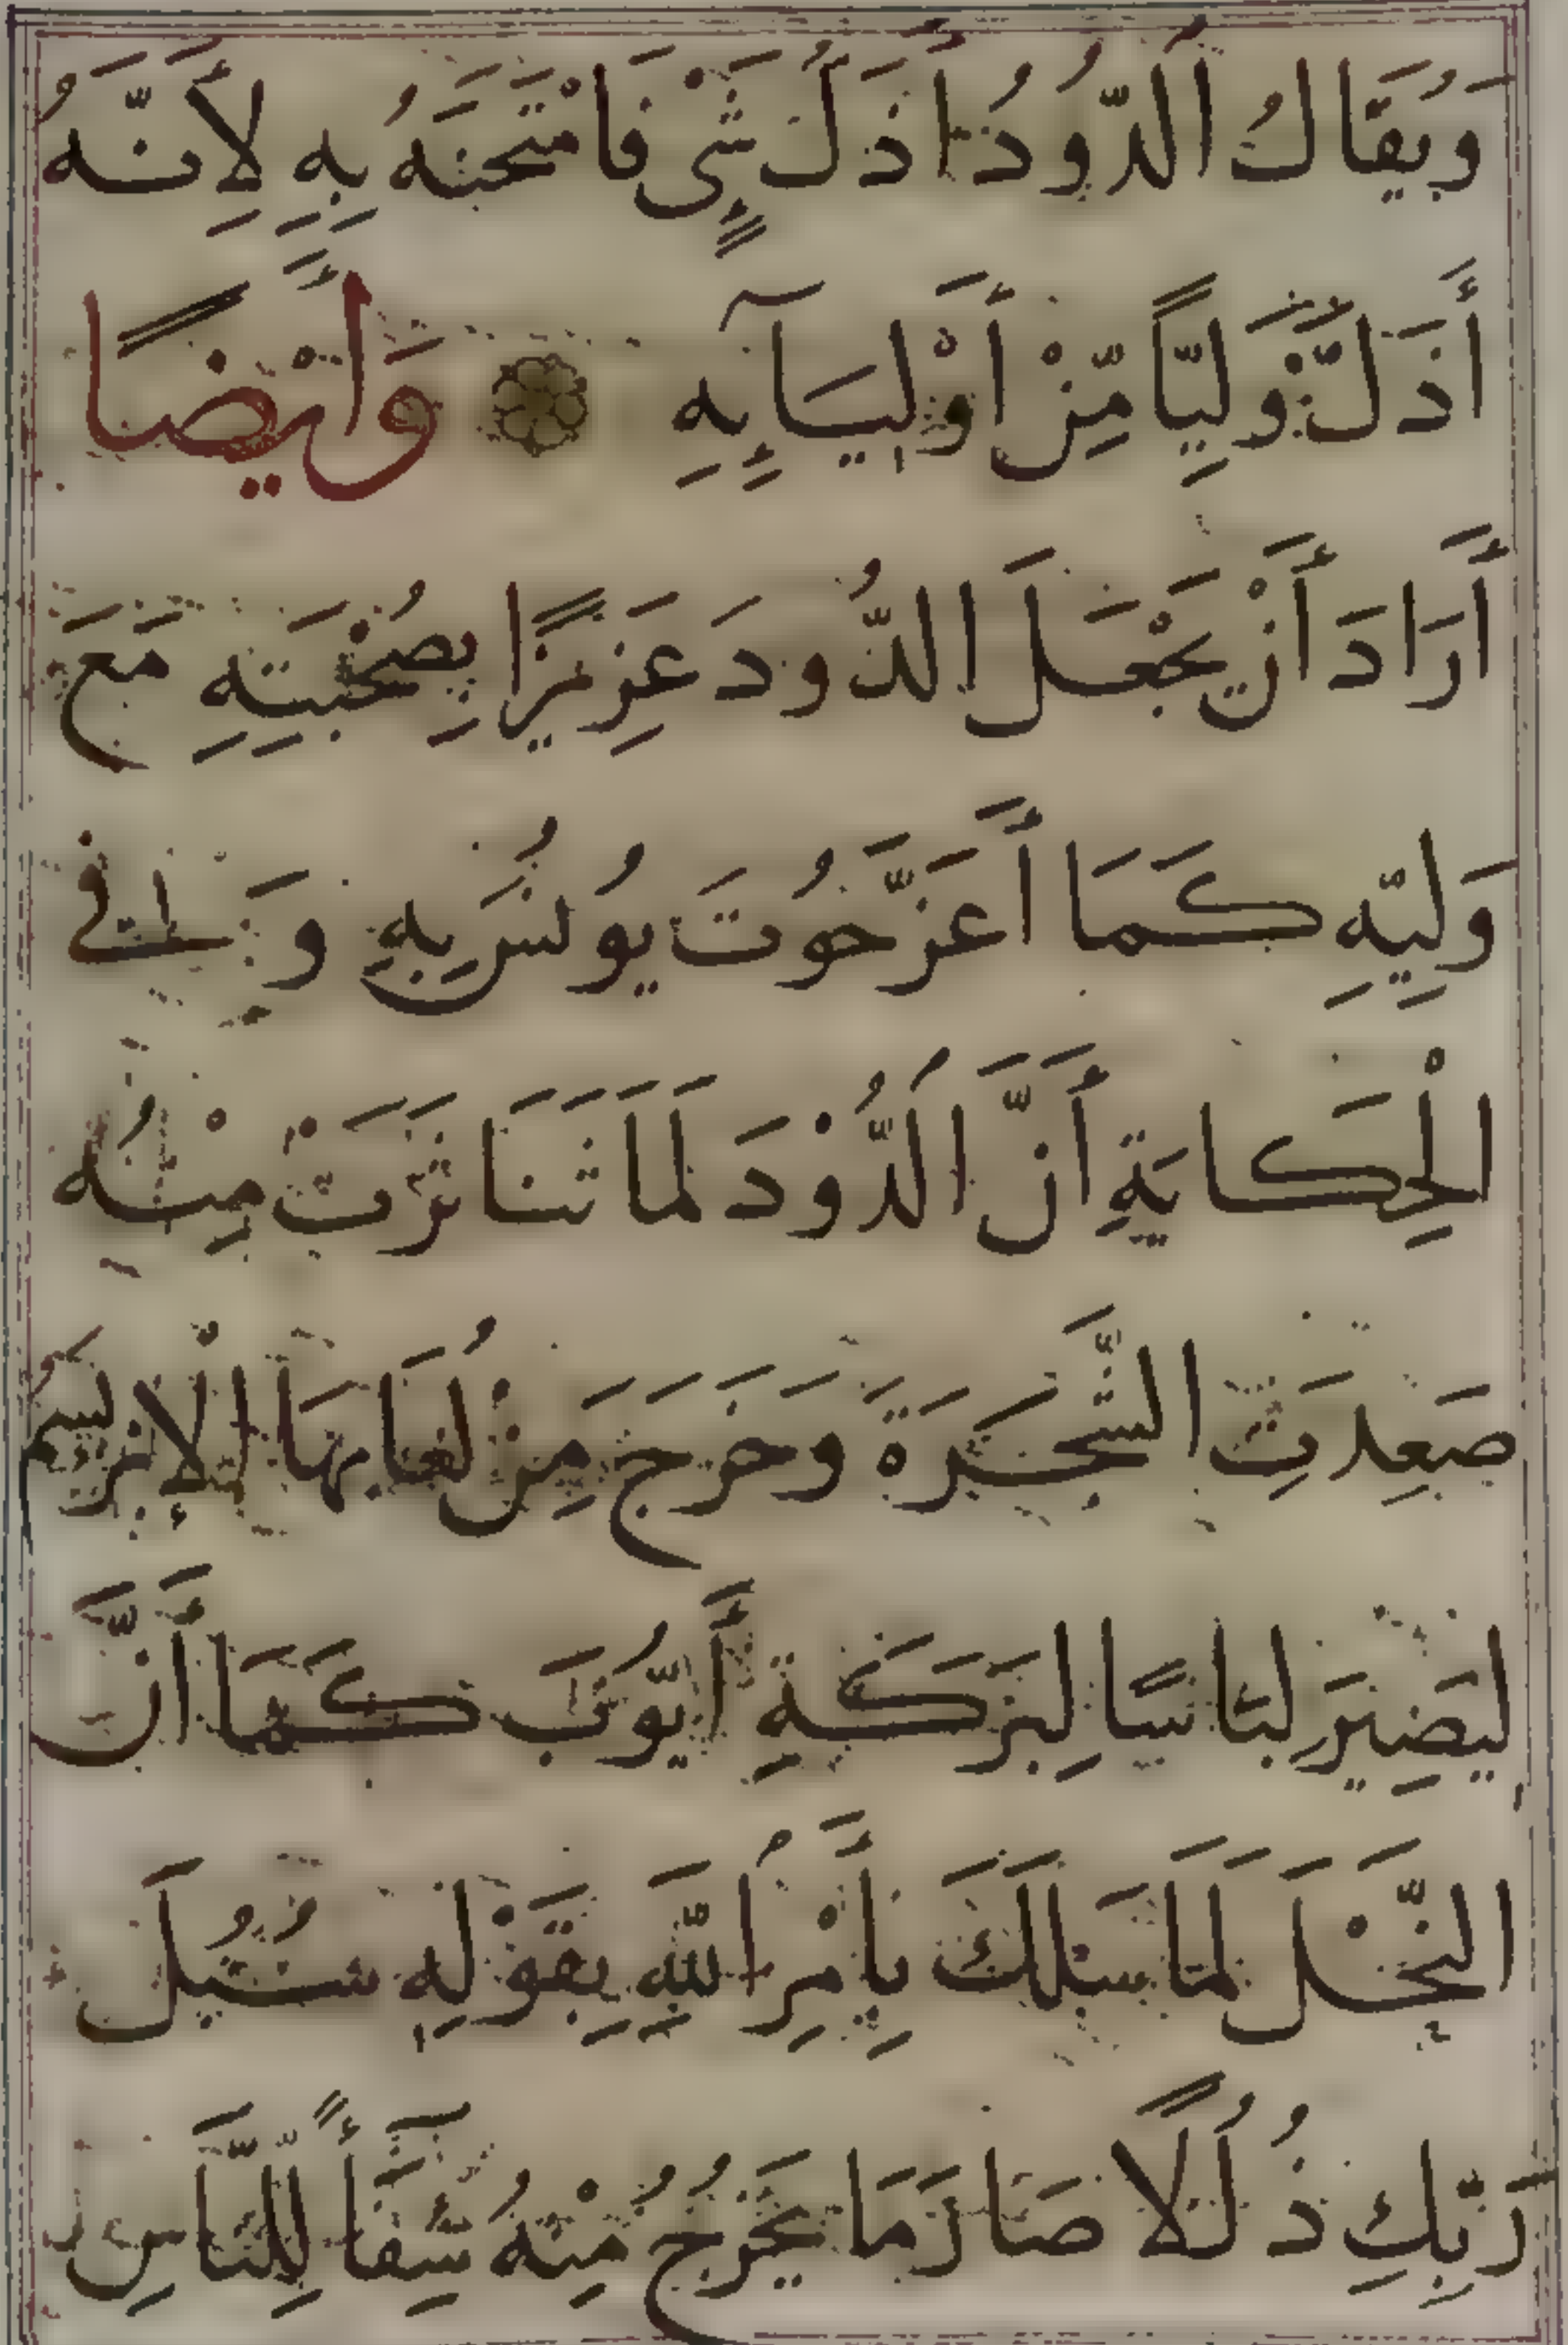 وَيُقَالُ اَلدُّودُ أَذَلُّ شَىْءٍ فَامْتَحَنَهُ بِهِ لِأَنَّهُ
أَذَلَّ وَلِيًّا مِّنْ أَوْلِيَآئِهِ ۞ وَأَيْضًا
أَرَادَ أَنْ يَجْعَلَ الدُّودَ عَزِيزًا بِصُحْبَتِهِ مَعَ
وَلِيِّهِ كَمَا أَعَزَّ حُوتَ يُونُسَ بِهِ وَفِى
الْحِكَايَةِ أَنَّ اَلدُّوْدَ لَمَا تَنَاثَرَتْ مِنْهُ
صَعِدَتِ الشَّجَرَةَ وَخَرَجَ مِنْ لُعَابِهَا الْإِبْرَيسَمُ
لِيَصِيرَ لِبَاسًا لِبَرَكَةِ أَيُّوبَ كَمَا أَنَّ
النَّحْلَ لَمَا سَلَكَ بِأَمْرِ اَللّٰهِ بِقَوْلِهِ سُبُلَ
رَبِّكِ ذُلُلًا صَارَ مَا يَخْرُجُ مِنْهُ شِفَآءً لِلنَّاسِ